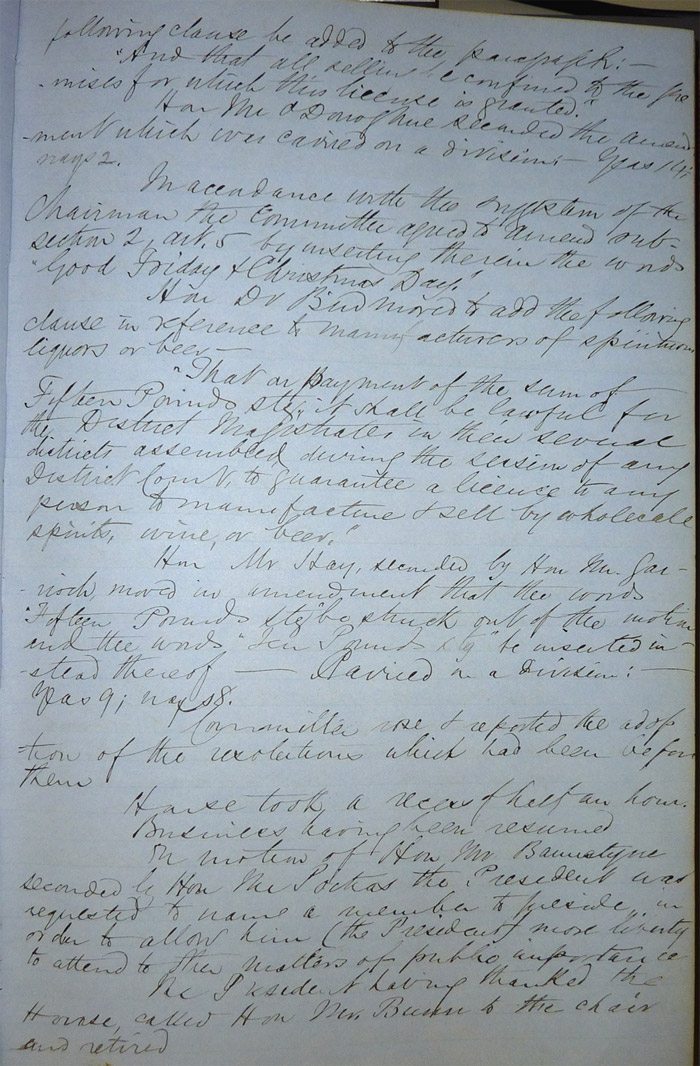 following clause be added to the paragraph:—
"And that all selling be confined to the pre
-mises for which this license is granted."
Hon Mr O'Donoghue seconded the amend
-ment which was carried on a division:— Yeas 14;
nays 2.
In accordance with the of the
Chairman the Committee agreed to amend sub-
section 2, art. 5 by inserting therein the words
"Good Friday & Christmas Day."
Hon Dr Bird moved to add the following
clause in reference to manufacturers of spirituous
liquors or beer—
"That on payment of the sum of
Fifteen Pounds stg, it shall be lawful for
the District Magistrates in their several
districts assembled during the session of any
District Court, to guarantee a licence to any
person to manufacture & sell by wholesale
spirits, wine, or beer."
Hon Mr Hay, seconded by Hon Mr. Gar-
-rioch, moved in amendment that the words
"Fifteen Pounds stg" be struck out of the motion
and the words "Ten Pounds stg" be inserted in-
-stead thereof — Carried on a division:—
Yeas 9; nays 8.
Committee rose & reported the adop
-tion of the resolutions which had been before
them
House took a recess of half an hour.
Business having been resumed
On motion of Hon Mr Bannatyne
seconded by Hon Mr Poitras the President was
requested to name a member to preside, in
order to allow him (the President) more liberty
to attend to other matters of public importance
The President having thanked the
House, called Hon Mr. Bunn to the chair
and retired